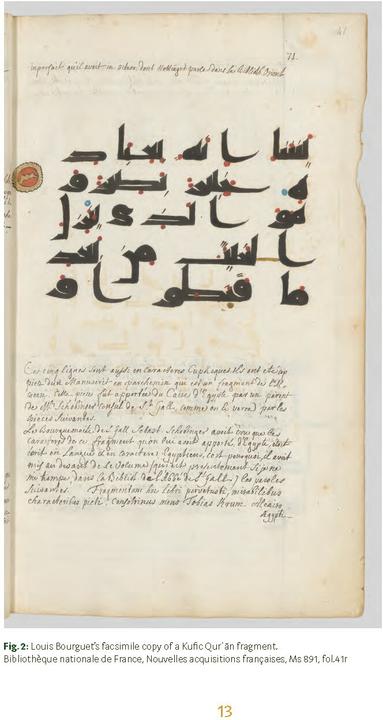 41
71.
imparfait qu'il avoit dont Hottinger parle dans la Biblioth. Orient
يشا انه بعباد
ه خبير بصير و
هو الذي ينزل
الغيث من بعد
ما قنطوا و
Ces cinq lignes sont aussi en caracteres Cuphiques. Ils ont été co
piez d'un Manuscrit en parchemin qui est un fragment de l'Al
coran. Cette piece fut apportée du Caire d'Egypte par un parent
de Mr. Schobinger Consul de St. Gall, comme on le verra par les
pieces suivantes.
Le Bourguemaitre de St Gall Sebast. Schobinger avoit cru que les
caracteres de ce fragment qu'on lui avoit apporté d'Egypte, etoit
écrit en Langue & en caracteres Egyptiens, c'est pourquoi, il avoit
mis au dessus de ce Volume (qui est presentement si je ne
me trompe, dans la Biblioth. de l'Abbé de St Gall) les paroles
suivantes. Fragmentum hoc libri pervetusti, mirabilibus
characteribus picti, Consobrinus meus Tobias Krum. Alcairo
Ægypti
Fig. 2: Louis Bourguet's facsimile copy of a Kufic Qurʾān fragment.
Bibliothèque nationale de France, Nouvelles acquisitions françaises, Ms 891, fol.41r
13